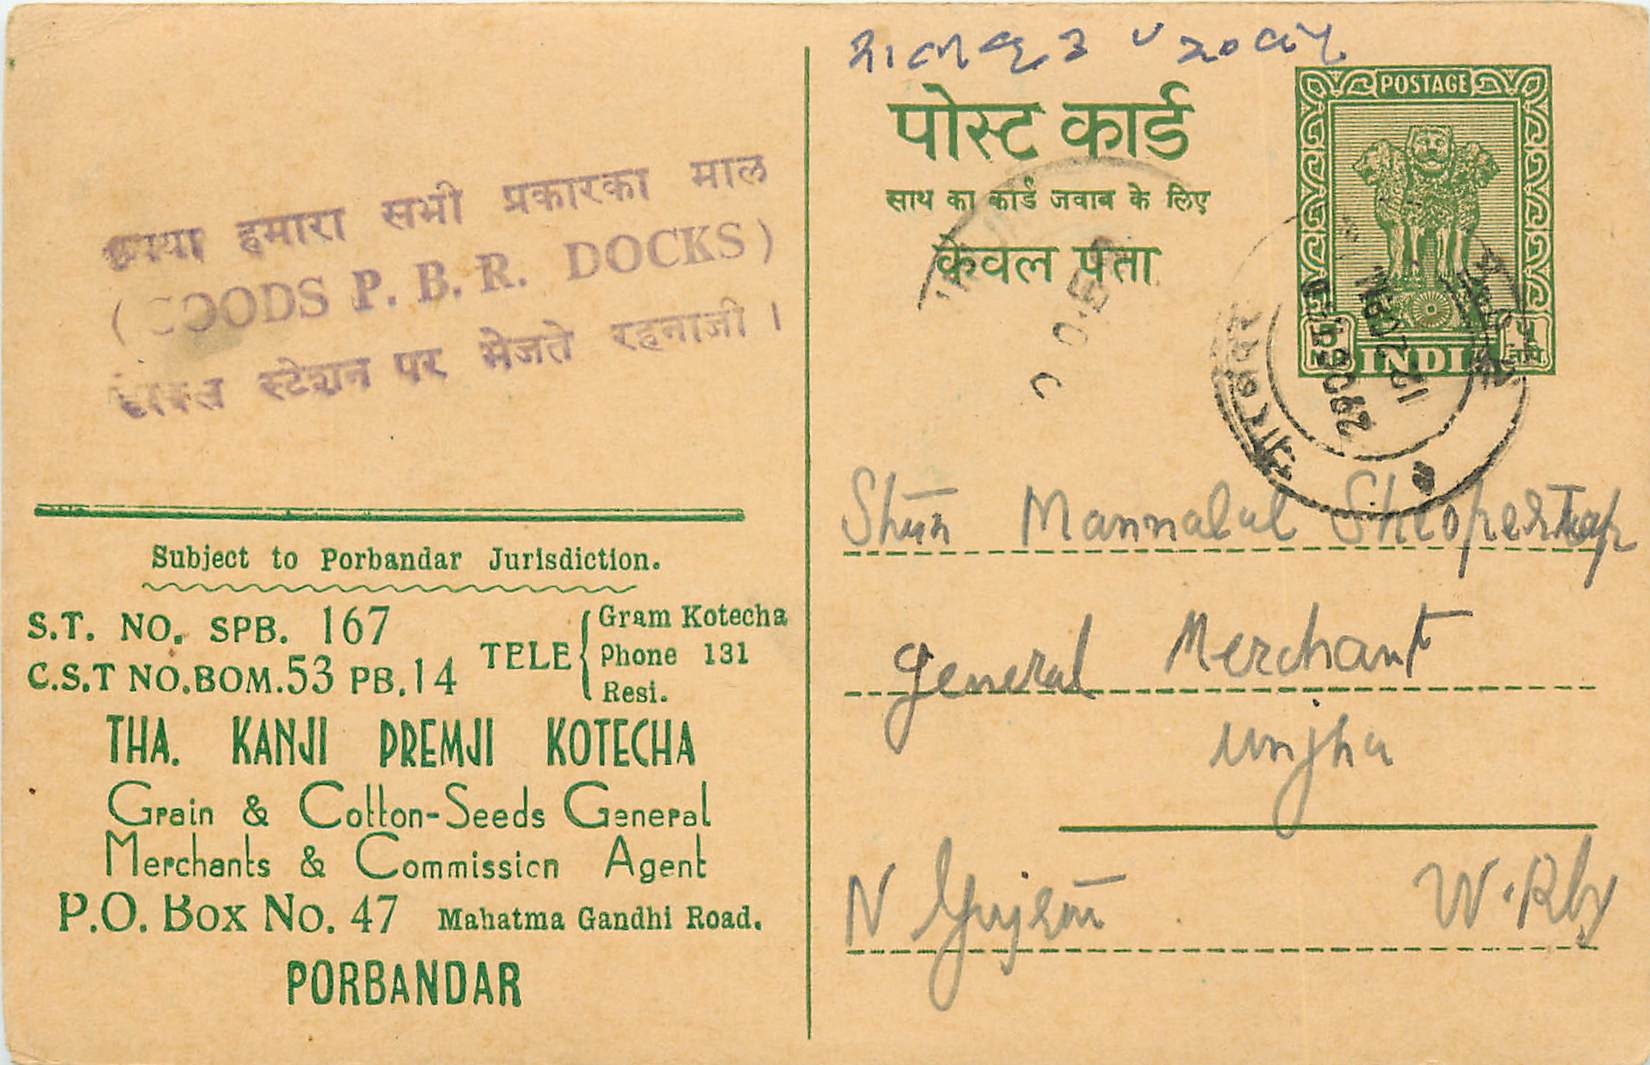 हमारा सभी प्रकारका माल
(GOODS P. B. R. DOCKS)
स्टेशन पर भेजते रहनाजी ।
Subject to Porbandar Jurisdiction.
S.T. NO. SPB. 167
C.S.T NO.BOM.53 PB.14
TELE
Gram Kotecha
Phone 131
Resi.
THA. KANJI PREMJI KOTECHA
Grain & Cotton-Seeds General
Merchants & Commission Agent
P.O. Box No. 47 Mahatma Gandhi Road.
PORBANDAR
पोस्ट कार्ड
साथ का कार्ड जवाब के लिए
केवल पता
POSTAGE
INDIA
पोरबंदर
Mannalal
General Merchant
Unjha
N Gujrat W.Rly